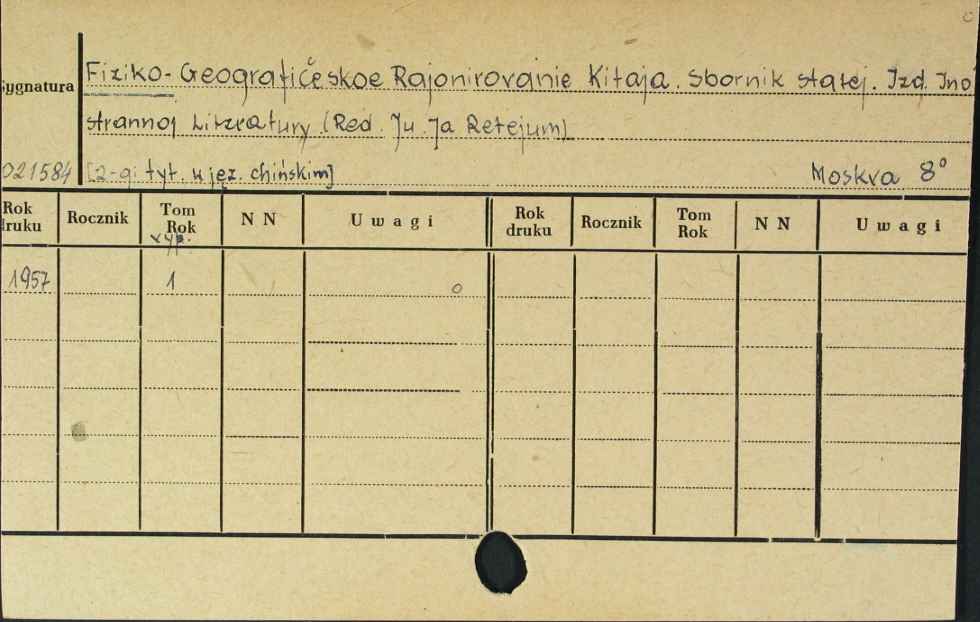 ygnatura
Fiziko-Geografičeskoe Rajonirovanie Kitaja. Sbornik statej. Izd. Ino
strannoj Literatury (Red. Ju. Ja Retejum)
021584 [2-gi tyt. w jęz. chińskim] Moskva 8°
Rok druku Rocznik Tom Rok NN Uwagi Rok druku Rocznik Tom Rok NN Uwagi
vyp.
1957 1